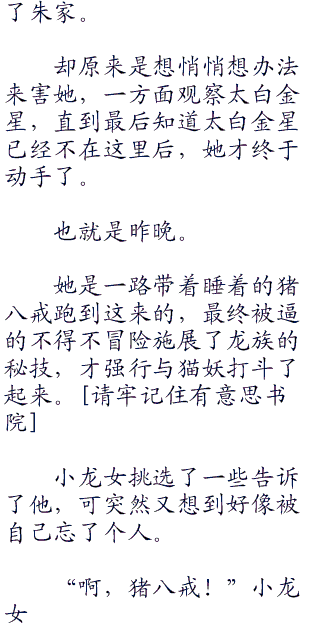 了朱家。
却原来是想悄悄想办法
来害她，一方面观察太白金
星，直到最后知道太白金星
已经不在这里后，她才终于
动手了。
也就是昨晚。
她是一路带着睡着的猪
八戒跑到这来的，最终被逼
的不得不冒险施展了龙族的
秘技，才强行与猫妖打斗了
起来。[请牢记住有意思书
院]
小龙女挑选了一些告诉
了他，可突然又想到好像被
自己忘了个人。
“啊，猪八戒！”小龙
女